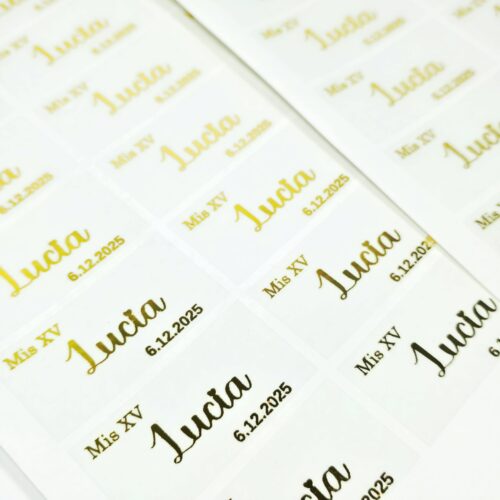 Mis XV
Lucia
6.12.2025
Mis XV
Lucia
6.12.2025
Mis XV
Lucia
6.12.2025
Mis XV
Lucia
6.12.2025
Mis XV
Lucia
6.12.2025
Mis XV
Lucia
6.12.2025
Mis XV
Lucia
Lucia
6.12.2025
Mis XV
Lucia
6.12.2025
Mis XV
Lucia
6.12.2025
Mis XV
Lucia
6.12.2025
Mis XV
Lucia
Lucia